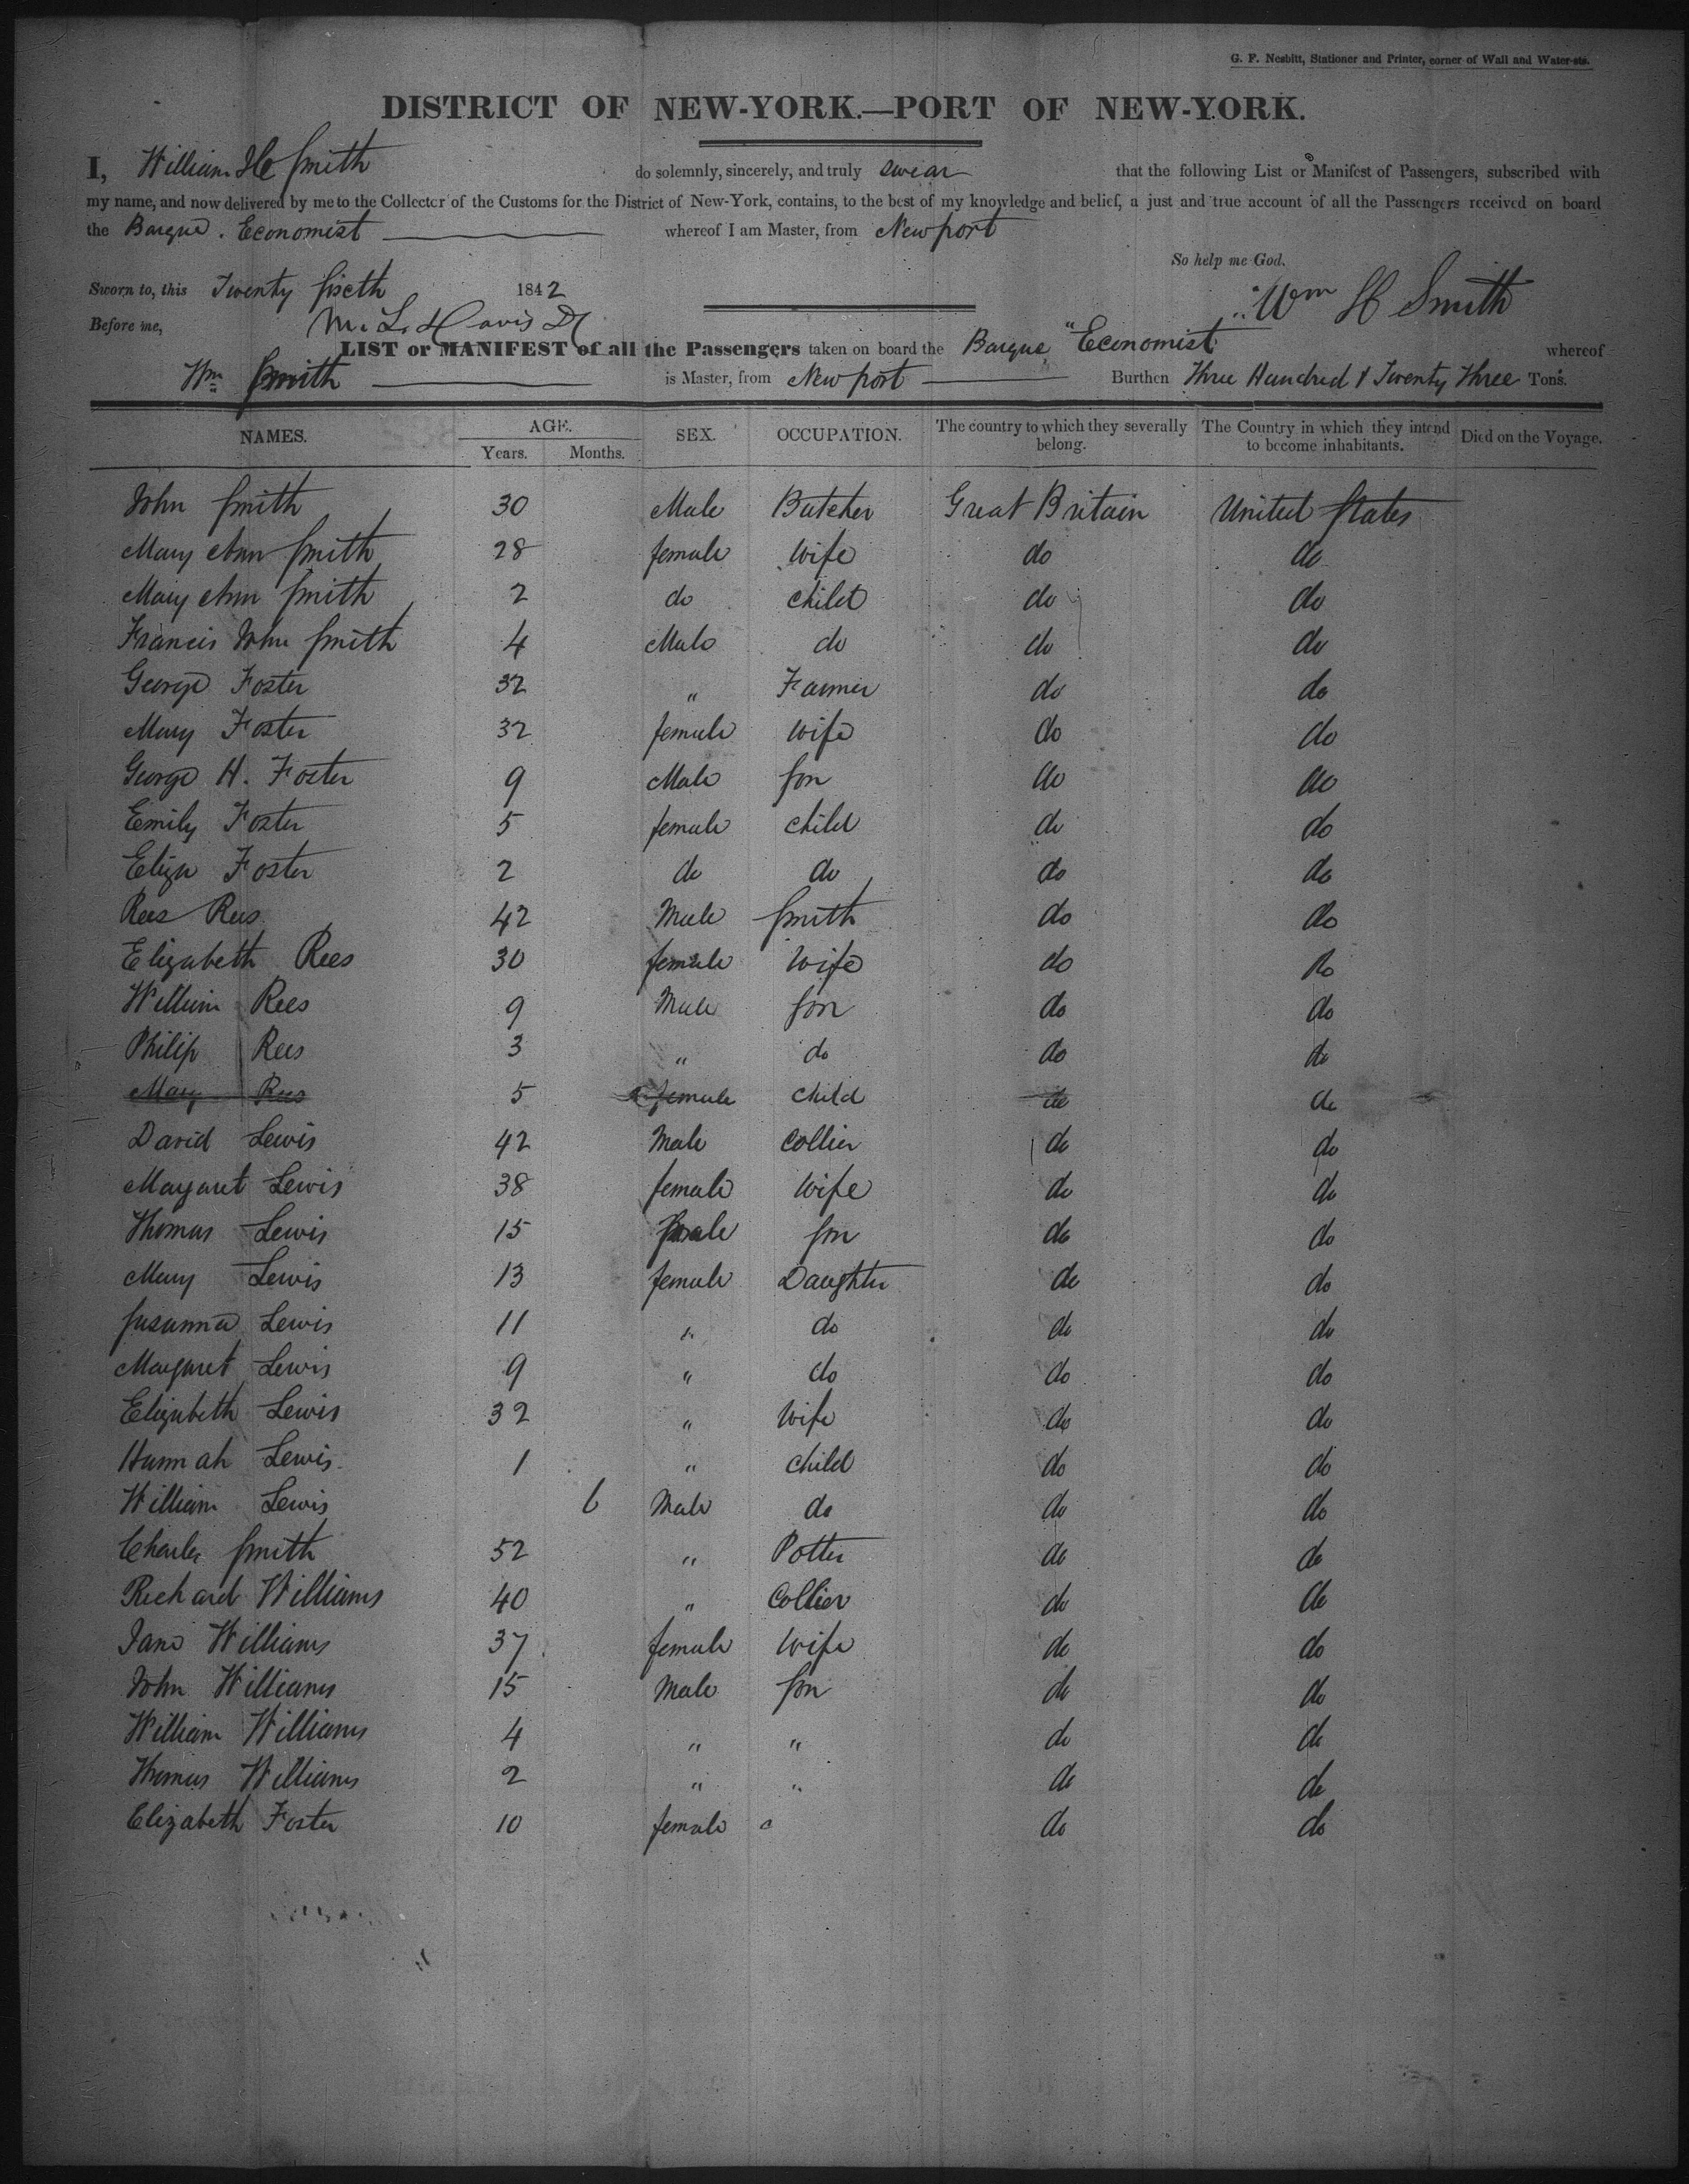 G. F. Nesbitt, Stationer and Printer, corner of Wall and Water-sts.
DISTRICT OF NEW-YORK.—PORT OF NEW-YORK.
I, William H Smith do solemnly, sincerely, and truly swear that the following List or Manifest of Passengers, subscribed with
my name, and now delivered by me to the Collector of the Customs for the District of New-York, contains, to the best of my knowledge and belief, a just and true account of all the Passengers received on board
the Barque. Economist whereof I am Master, from Newport
So help me God.
Sworn to, this Twenty sixth 1842
Wm H Smith
Before me, M. L. Davis
LIST or MANIFEST of all the Passengers taken on board the Barque "Economist whereof
Wm Smith is Master, from Newport Burthen Three Hundred & Twenty Three Tons.
NAMES. AGE. SEX. OCCUPATION. The country to which they severally belong. The Country in which they intend to become inhabitants. Died on the Voyage.
Years. Months.
John Smith 30 Male Butcher Great Britain United States
Mary Ann Smith 28 female Wife do do
Mary Ann Smith 2 do child do do
Francis John Smith 4 Male do do do
George Foster 32 " Farmer do do
Mary Foster 32 female Wife do do
George H. Foster 9 Male Son do do
Emily Foster 5 female child do do
Eliza Foster 2 do do do do
Rees Rees 42 Male Smith do do
Elizabeth Rees 30 female Wife do do
William Rees 9 Male Son do do
Philip Rees 3 " do do do
Mary Rees 5 female child do do
David Lewis 42 Male Collier do do
Margaret Lewis 38 female Wife do do
Thomas Lewis 15 male Son do do
Mary Lewis 13 female Daughter do do
Susanna Lewis 11 " do do do
Margaret Lewis 9 " do do do
Elizabeth Lewis 32 " Wife do do
Hannah Lewis 1 " child do do
William Lewis 6 Male do do do
Charles Smith 52 " Potter do do
Richard Williams 40 " Collier do do
Jane Williams 37 female Wife do do
John Williams 15 Male Son do do
William Williams 4 " " do do
Thomas Williams 2 " " do do
Elizabeth Foster 10 female do do